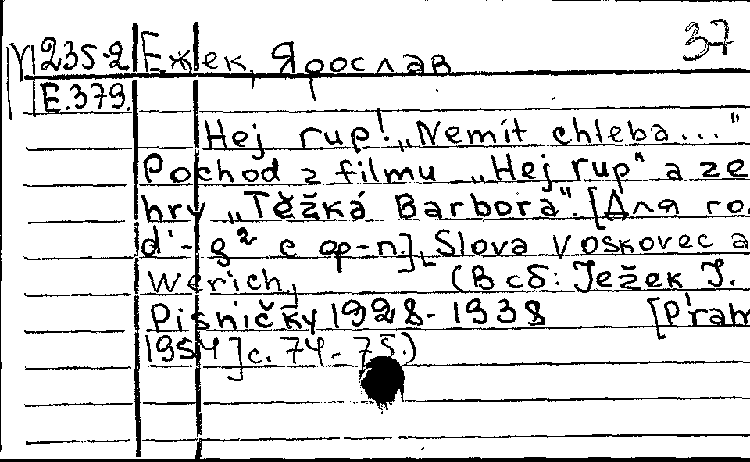 37
М235-2 Ежек, Ярослав
Е.379.
Hej rup! „Nemít chleba..."
Pochod z filmu „Hej rup" a ze
hry „Těžká Barbora". [Для го
d'-g² с ф-п.], Slova Voskovec a
Werich, (В сб: Ježek J.
Pisničky 1928-1938 [Prah
1954] с. 74-75.)